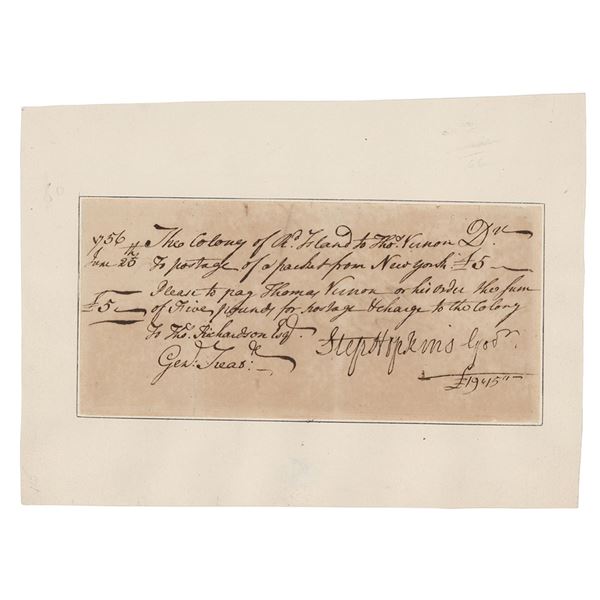 1756 The Colony of Rd. Island to Thos. Vernon Dr.
June 25th To postage of a packet from New York £5
Please to pay Thomas Vernon or his order the sum
£5 of Five pounds for postage & charge to the Colony
To Tho. Richardson Esqr.
Step Hopkins Govr.
Genl. Treasr.
£19"15"